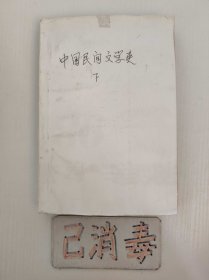 中国民间文学史
下
已消毒